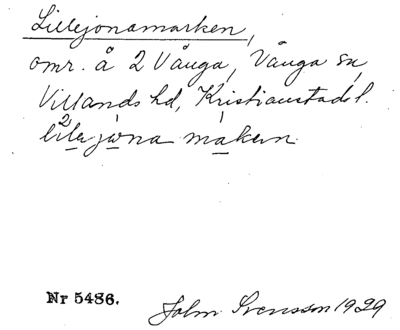 Lillejonamarken,
omr. å 2 Vånga, Vånga sn,
Villands hd, Kristianstads l.
lilejona makern
Nr 5486.
John Svensson 1929